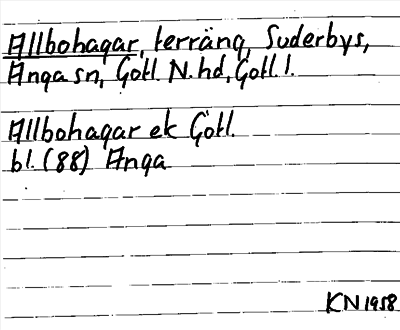 Allbohagar, terräng, Suderbys,
Anga sn, Gotl. N. hd, Gotl. l.
Allbohagar ek Gotl.
bl. (88) Anga
KN 1958